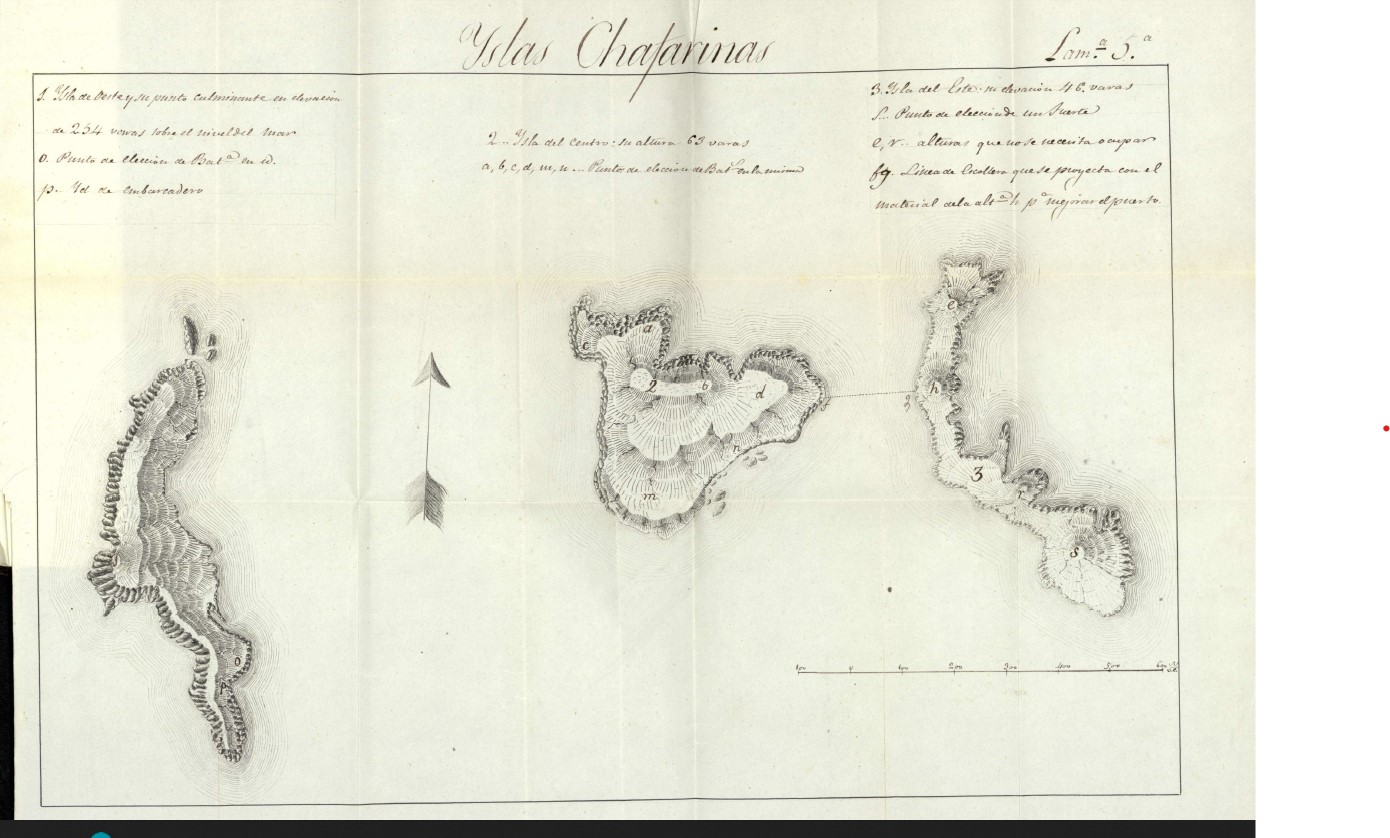 Yslas Chafarinas
Lam.ª 5.ª
1. Ysla de Oeste y su punto culminante en elevación
de 254 varas sobre el nivel del mar
o. Punto de elección de Bat.ª en id.
p. Yd de embarcadero
2.. Ysla del centro: su altura 63 varas
a, b, c, d, m, n ... Puntos de elección de Bat.ˢ en la misma
3. Ysla del Este: su elevación 46. varas
S... Punto de elección de un Fuerte
e, r.. alturas que no se necesita ocupar
fg. Linea de Escollera que se proyecta con el
material de la alt.ª h p.ª mejorar el puerto.
e
a
c
2 b
d
h
g
n
m
3
r
s
o
p
100 0 100 200 300 400 500 600